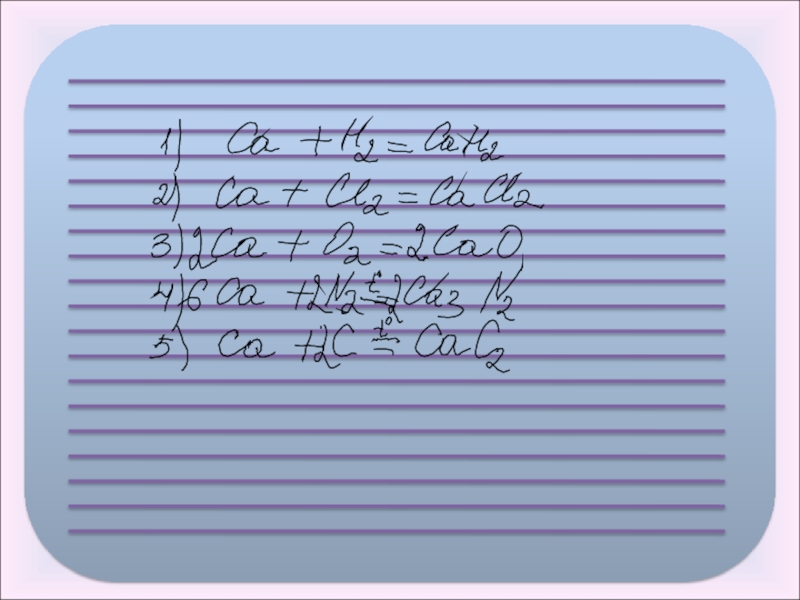 1) Ca + H₂ = CaH₂
2) Ca + Cl₂ = CaCl₂
3) 2Ca + O₂ = 2CaO
4) 6Ca + 2N₂ =t° 2Ca₃N₂
5) Ca + 2C =t° CaC₂